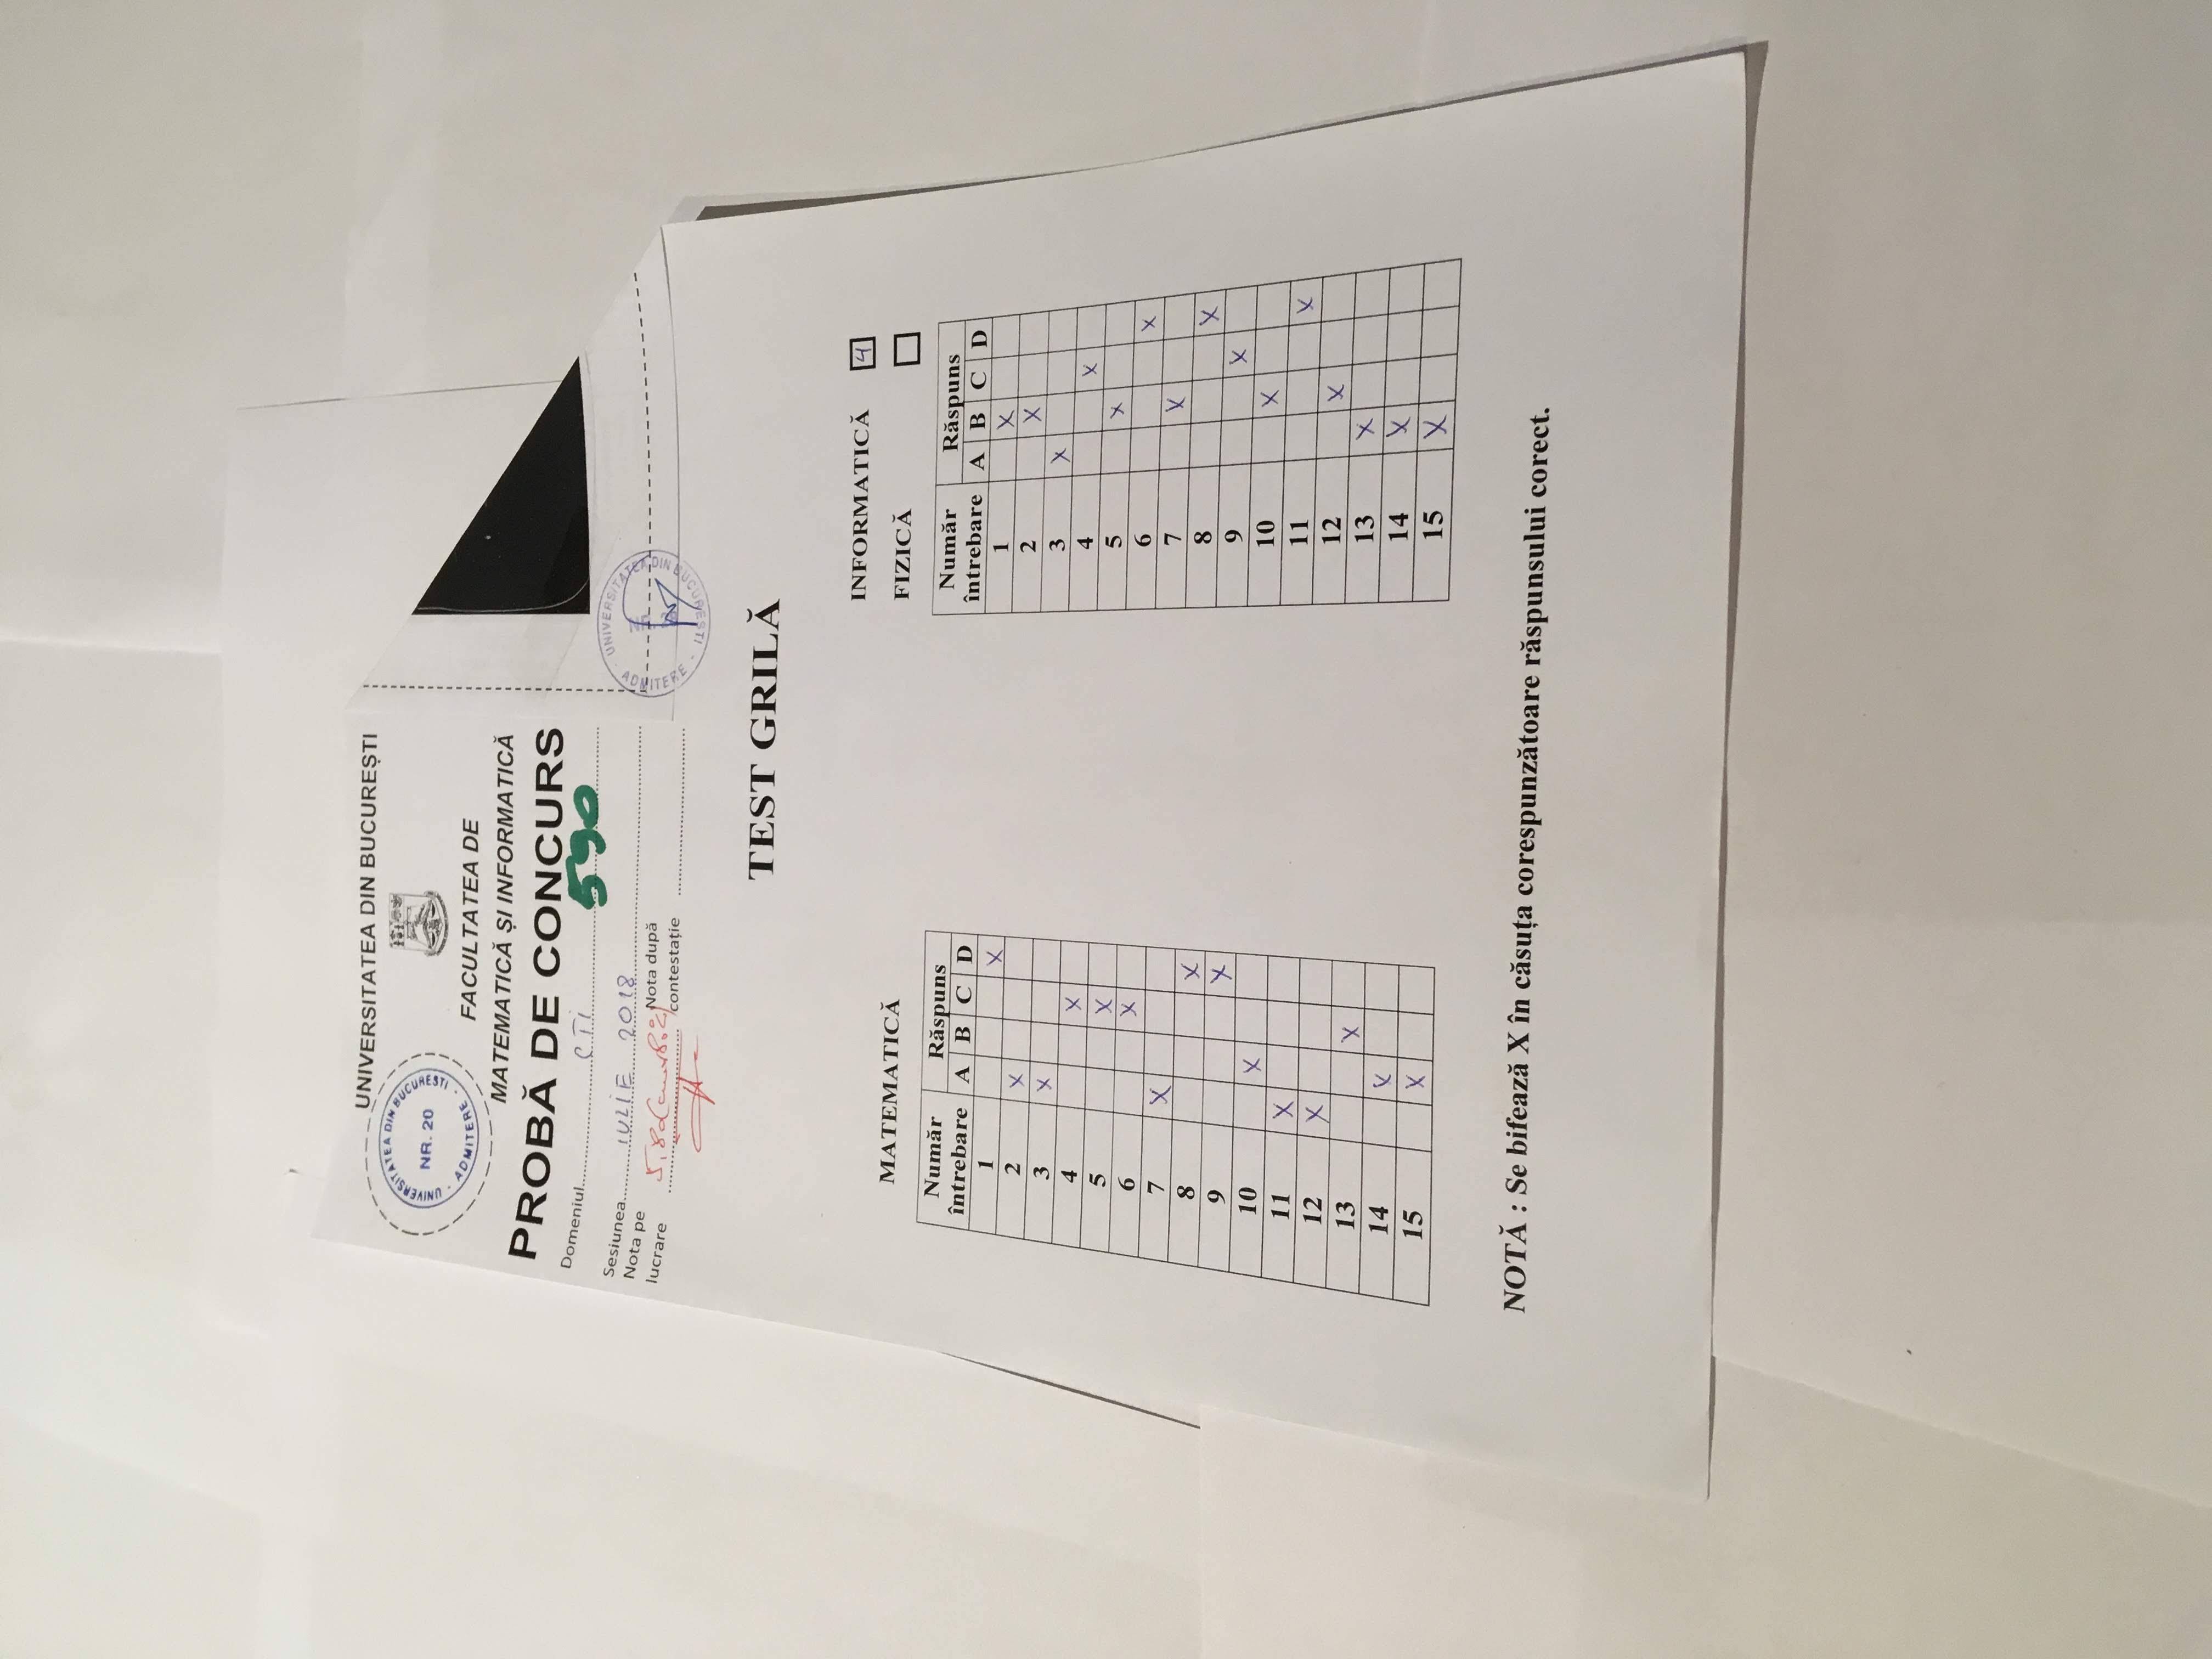 UNIVERSITATEA DIN BUCUREȘTI
UNIVERSITATEA DIN BUCUREȘTI - ADMITERE -
NR. 20
FACULTATEA DE
MATEMATICĂ ȘI INFORMATICĂ
PROBĂ DE CONCURS
Domeniul CTI 590
Sesiunea IULIE 2018
Nota pe lucrare 5,80
Nota după contestație
UNIVERSITATEA DIN BUCUREȘTI - ADMITERE -
TEST GRILĂ
MATEMATICĂ
Număr întrebare Răspuns
A B C D
1 X
2 X
3 X
4 X
5 X
6 X
7 X
8 X
9 X
10 X
11 X
12 X
13 X
14 X
15 X
INFORMATICĂ 4
FIZICĂ
Număr întrebare Răspuns
A B C D
1 X
2 X
3 X
4 X
5 X
6 X
7 X
8 X
9 X
10 X
11 X
12 X
13 X
14 X
15 X
NOTĂ : Se bifează X în căsuța corespunzătoare răspunsului corect.